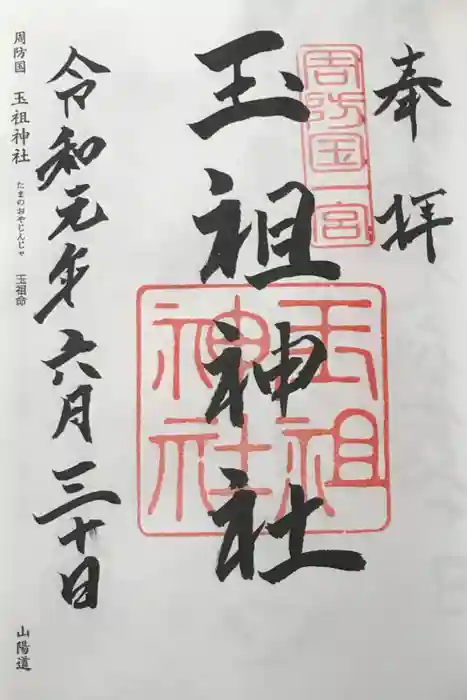 奉拝
周防国一宮
玉祖神社
玉祖神社
令和元年六月三十日
周防国 玉祖神社 たまのおやじんじゃ 玉祖命 山陽道